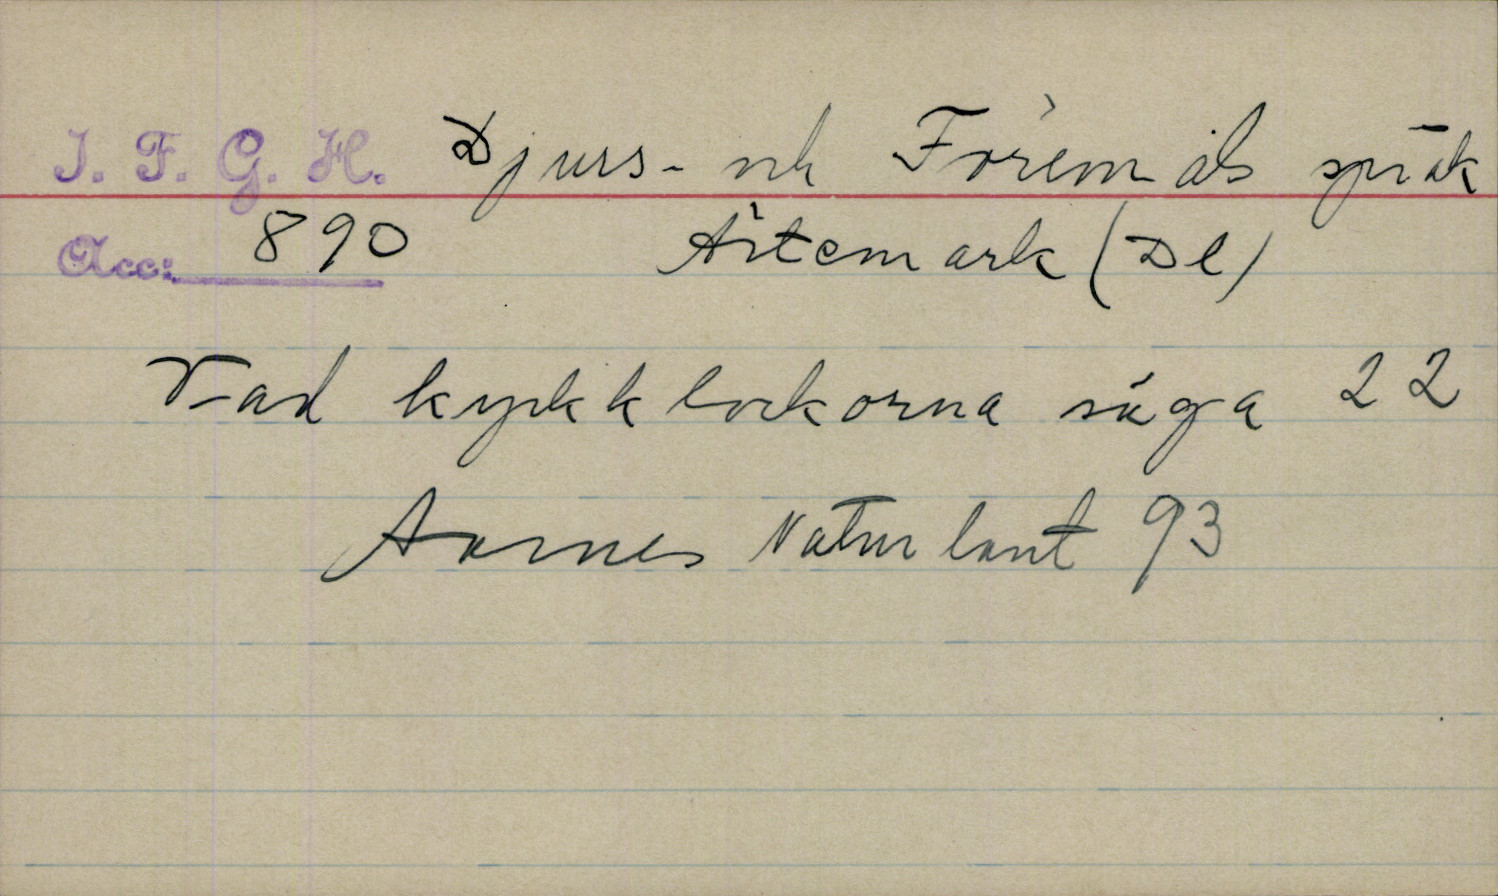 I. F. G. H. Djurs- och Föremåls språk
Acc: 890 Ärtemark (Dl)
Vad kyrkklockorna säga 22
Aarnes Naturlaut 93